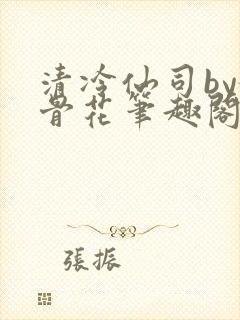 清冷仙司by
骨花笔趣阁
張振